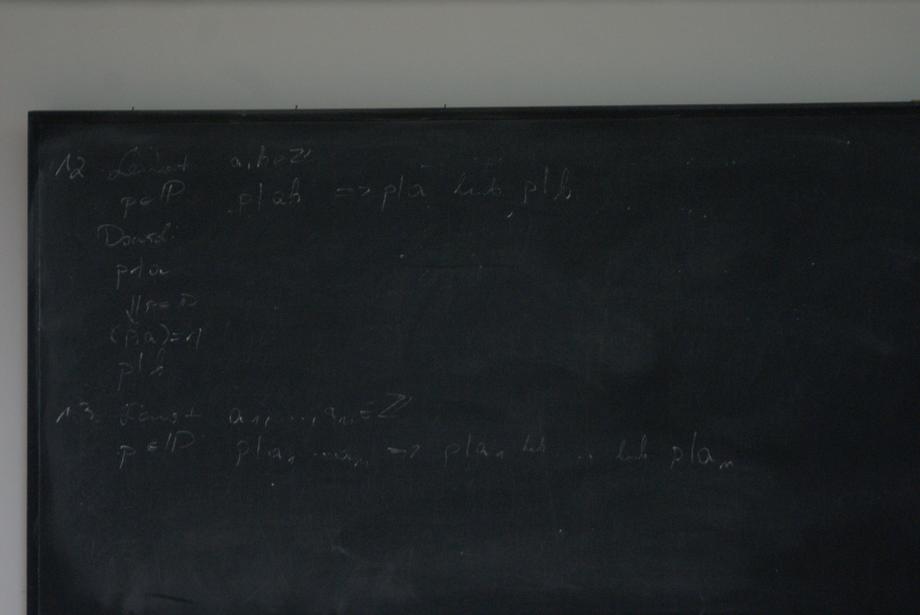 12. Lemat a, b ∈ ℤ
p ∈ ℙ p|ab => p|a lub p|b
Dowód:
p∤a
⇓ p ∈ ℙ
(p,a)=1
p|b
13. Lemat a₁, ..., aₙ ∈ ℤ
p ∈ ℙ p|a₁...aₙ => p|a₁ lub ... lub p|aₙ